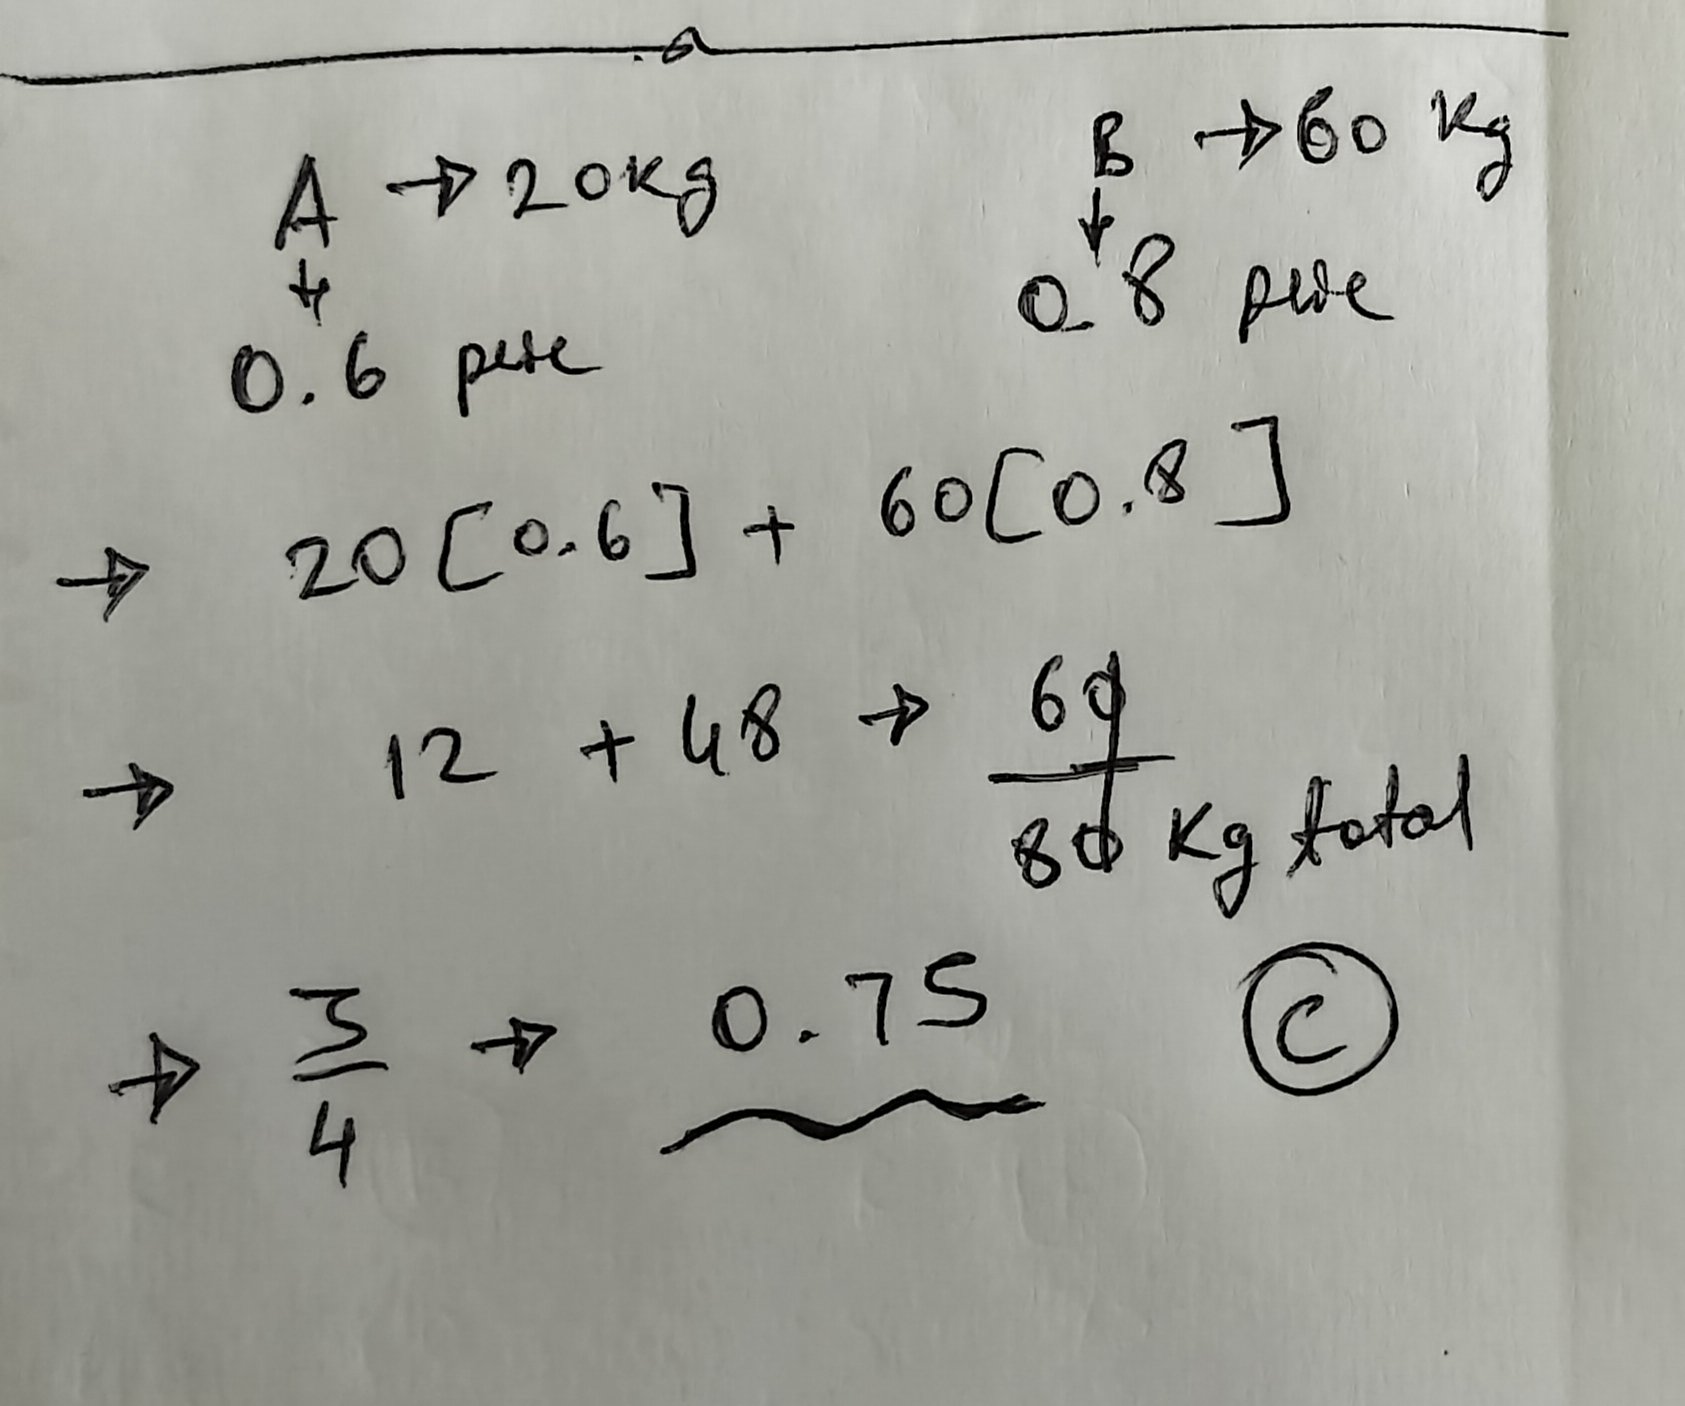 A → 20kg
B → 60 Kg
↓
↓
0.6 pure
0.8 pure
→ 20[0.6] + 60[0.8]
→ 12 + 48 → 60/80 Kg total
→ 3/4 → 0.75 C